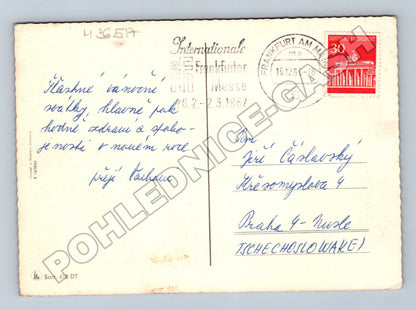 H 36577
Internationale
Frankfurter
Messe
26.2.-2.3.1967
FRANKFURT AM M
DEUTSCHE BUNDESPOST
30
Šťastné vánoční
svátky, hlavně pak
hodně zdraví a spoko-
jenosti v novém roce
přejí
Pan
Jiří Čáslavský
Křesomyslova 4
Praha 4-Nusle
TSCHECHOSLOWAKEI
POHLEDNICE-GACH